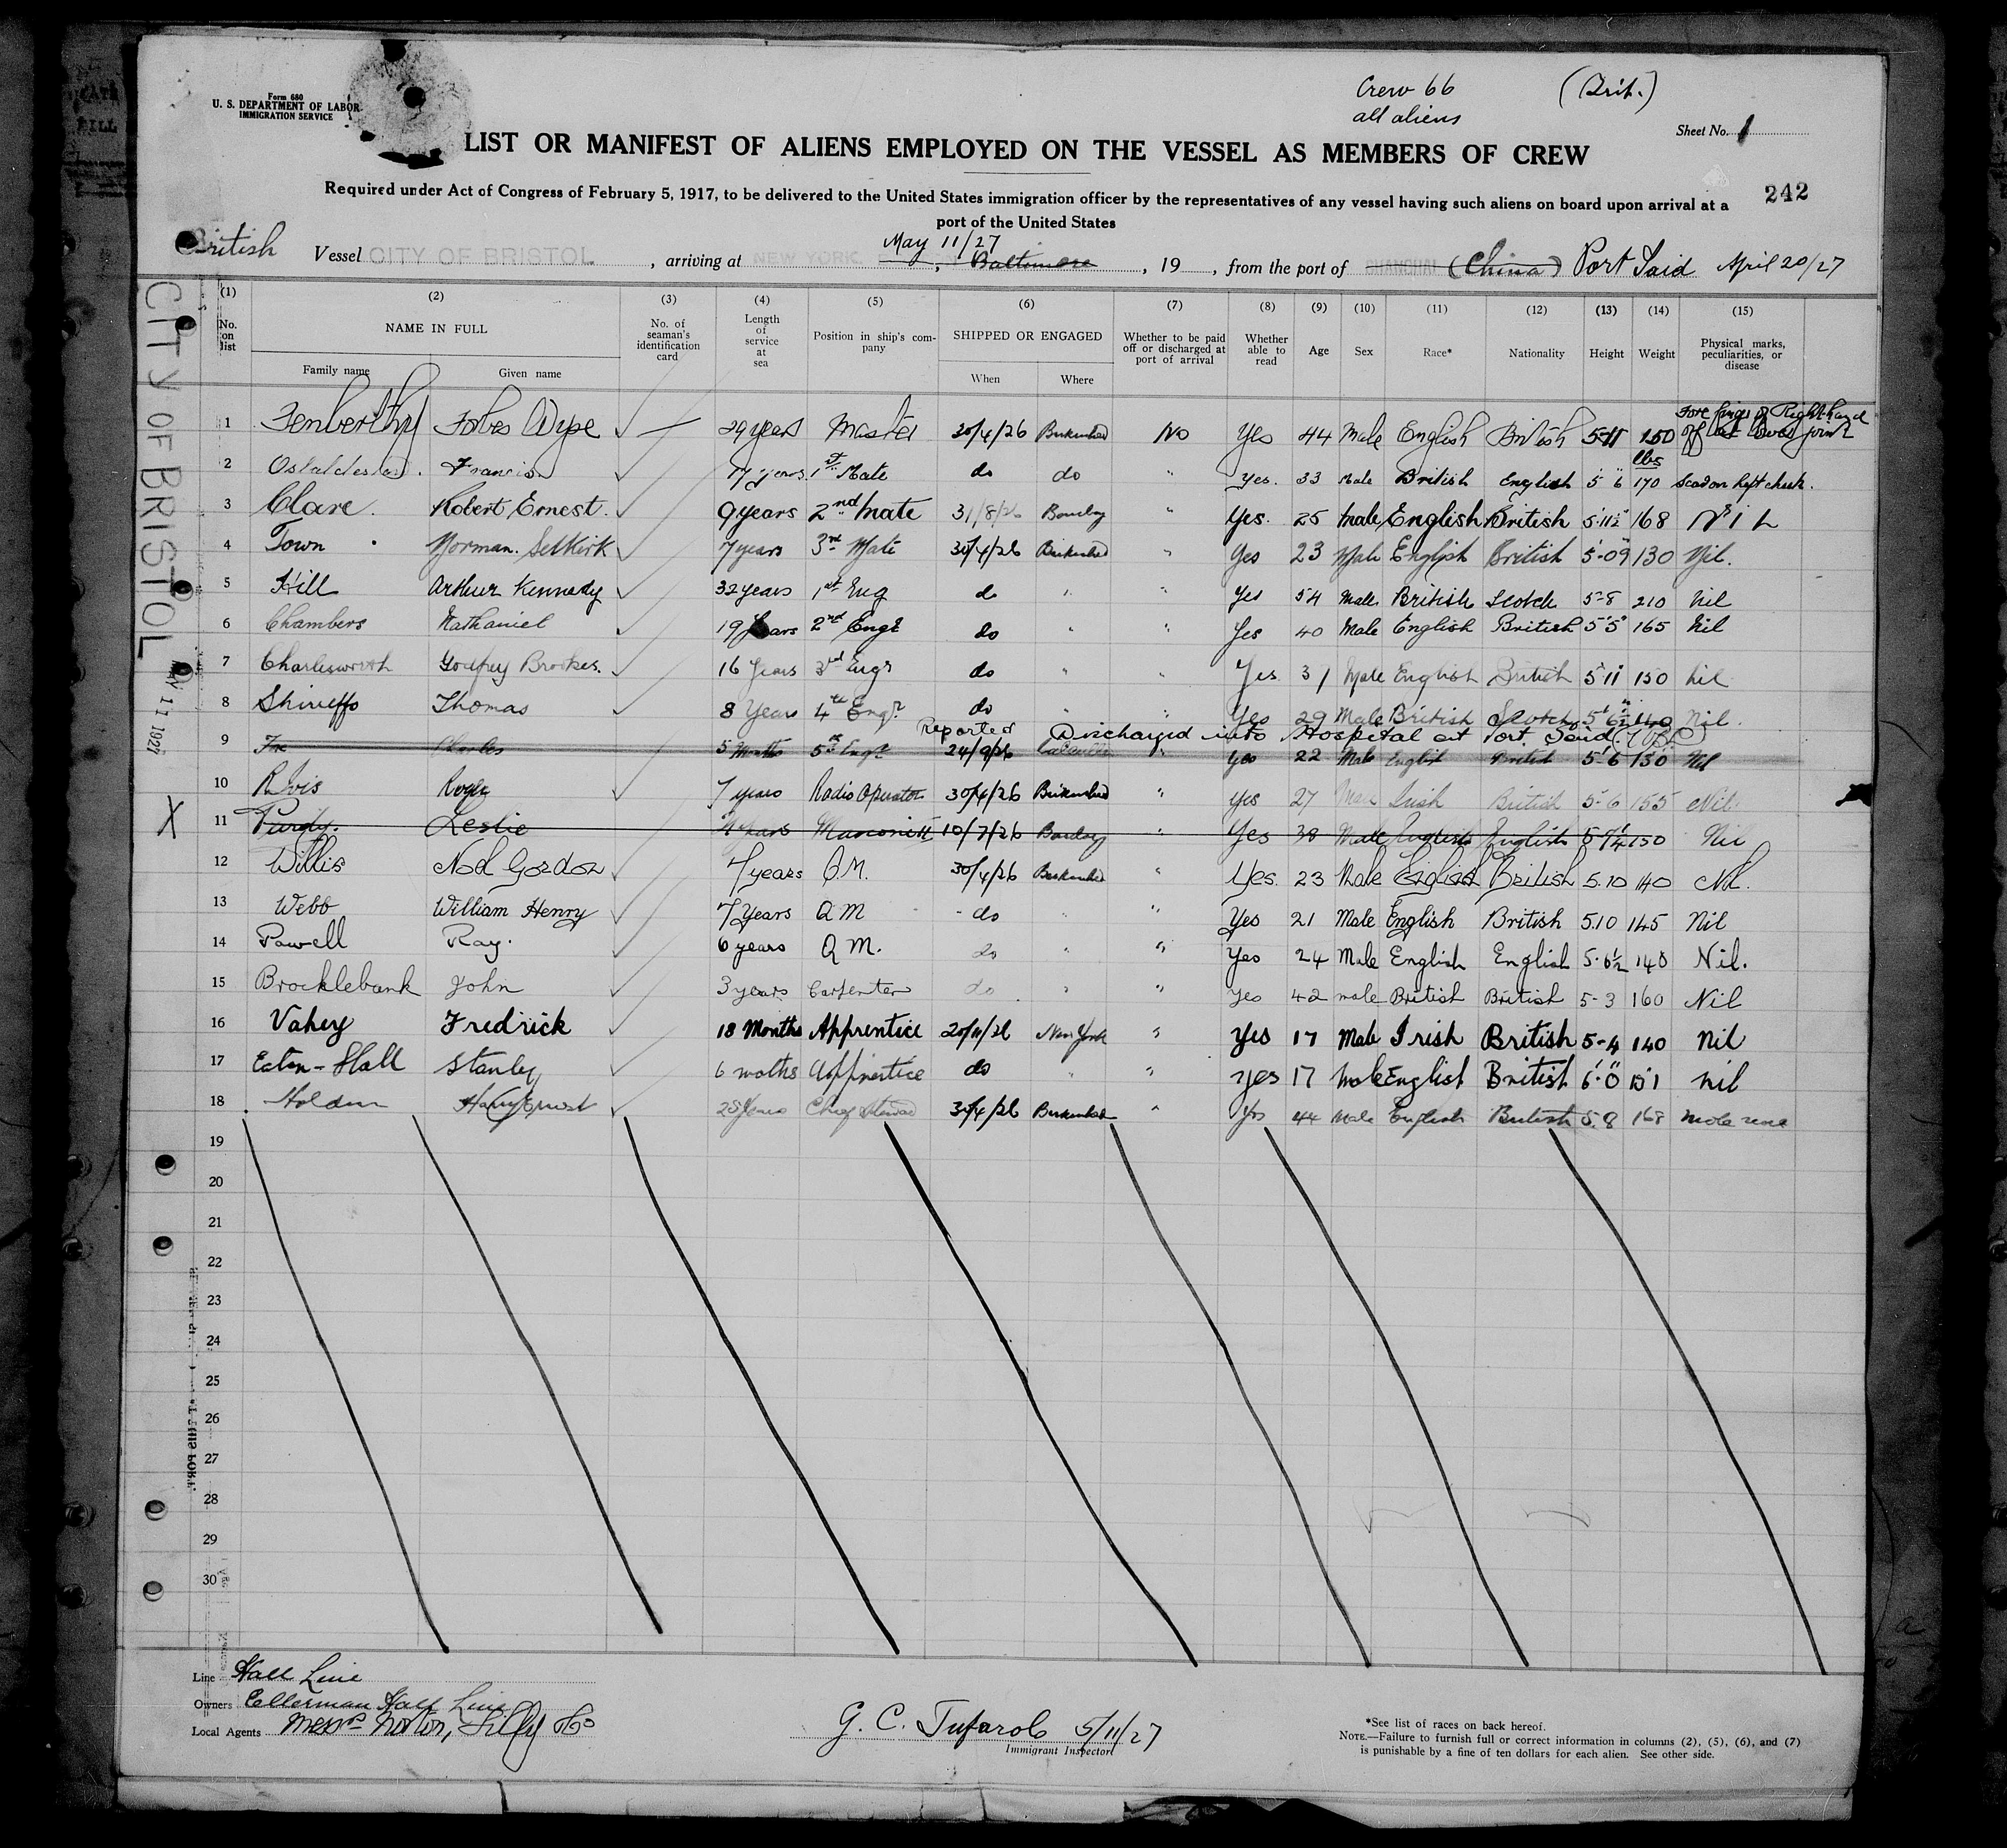 Crew 66 (Brit.)
all aliens
Form 680
U. S. DEPARTMENT OF LABOR
IMMIGRATION SERVICE
Sheet No. 1
LIST OR MANIFEST OF ALIENS EMPLOYED ON THE VESSEL AS MEMBERS OF CREW
Required under Act of Congress of February 5, 1917, to be delivered to the United States immigration officer by the representatives of any vessel having such aliens on board upon arrival at a
port of the United States
242
British Vessel CITY OF BRISTOL, arriving at NEW YORK. May 11/27, Baltimore, 19, from the port of SHANGHAI (China) Port Said April 20/27
CITY OF BRISTOL
11 1927
(1) (2) (3) (4) (5) (6) (7) (8) (9) (10) (11) (12) (13) (14) (15)
No. on list NAME IN FULL No. of seaman's identification card Length of service at sea Position in ship's company SHIPPED OR ENGAGED Whether to be paid off or discharged at port of arrival Whether able to read Age Sex Race* Nationality Height Weight Physical marks, peculiarities, or disease
Family name Given name When Where
1 Forbes 29 years Master 30/4/26 Birkenhead No Yes 44 Male English British 5-11 150 lbs Fore finger of Right hand off at joint
2 Francis 1st Mate do do " Yes. 33 Male British English 5 6 170 left cheek.
3 Clare. Robert Ernest. 9 years 2nd Mate 31/8/26 Bombay " Yes. 25 Male English British 5'11½" 168 Nil
4 Town Norman. Selkirk 7 years 3rd Mate 30/4/26 Birkenhead " Yes 23 Male English British 5-09 130 Nil.
5 Hill Arthur Kennedy 32 years 1st Eng do " " Yes 54 Male. British Scotch 5-8 210 nil
6 Chambers Nathaniel 19 Years 2nd Engr do " " Yes 40 Male English British 5 5" 165 Nil
7 Charlesworth Godfrey Brookes. 16 Years 3rd Engr do " " Yes 31 Male English British 5'11 150 nil
8 Shirreffs Thomas 8 Years 4th Engr. do " " Yes 29 Male British Scotch 5'6½" 140 Nil.
Reported Discharged into Hospital at Port Said
9 Charles 5 Months 5th Engr 24/9/26 Calcutta Yes 22 Male English British 5'6 130 Nil
10 7 years Radio Operator 30/4/26 Birkenhead " Yes 27 Male Irish British 5-6 155 Nil.
X 11 Purdy. Leslie 4 Years 10/7/26 " Yes 38 Male English English 150 Nil
12 Willis Noel Gordon 7 years Q.M. 30/4/26 Birkenhead " Yes. 23 Male English British 5.10 140 Nil.
13 Webb William Henry 7 Years Q M do " " Yes 21 Male English British 5.10 145 Nil
14 Powell Ray. 6 years Q M. do " " Yes 24 Male English English 5.6½ 140 Nil.
15 Brocklebank John 3 years Carpenter do " " Yes 42 male British British 5-3 160 Nil
16 Vahey Fredrick 18 Months Apprentice 20/11/26 New York " Yes 17 Male Irish British 5-4 140 Nil
17 Stanley 6 moths Apprintice do " " Yes 17 Male English British 6'.0" 151 nil
18 Holden Harry Ernest Chief Steward 30/4/26 Birkenhead " Yes 44 Male English British 5.8 168 Mole
19
20
21
22
23
24
25
26
27
28
29
30
Line Hall Line
Owners Ellerman Hall Line
Local Agents Messrs Norton, Lilly & Co
G. C. Tufarolo 5/11/27
Immigrant Inspector
*See list of races on back hereof.
NOTE.—Failure to furnish full or correct information in columns (2), (5), (6), and (7)
is punishable by a fine of ten dollars for each alien. See other side.